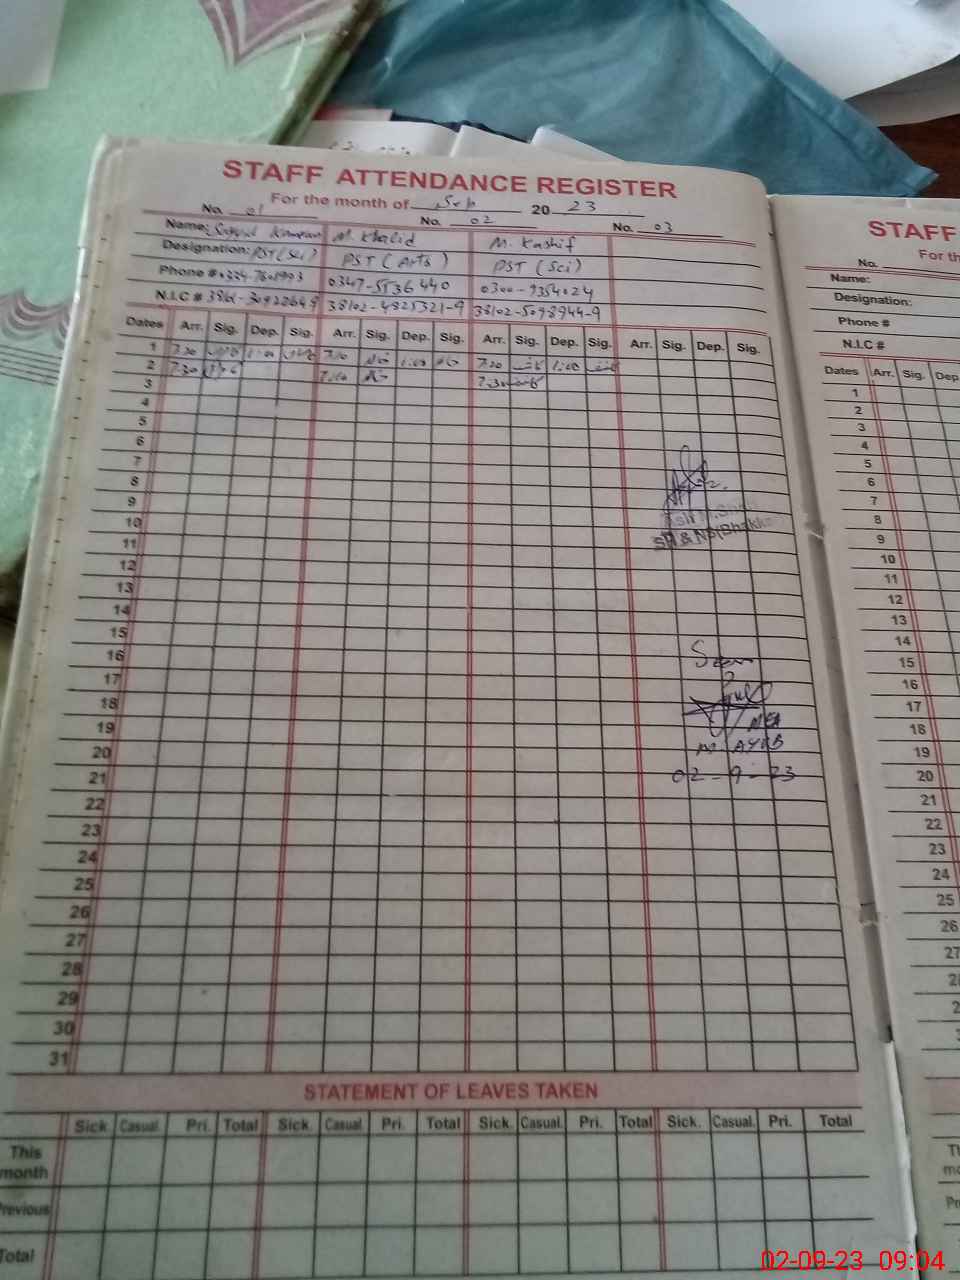 STAFF ATTENDANCE REGISTER
For the month of Sep 20 23
No. 01 No. 02 No. 03
Name: Kamran M. Khalid M. Kashif
Designation: PST (Sci) PST (Arts) PST (Sci)
Phone # 0347-5536440 0300-9354024
N.I.C # 38102-4825321-9 38102-5098944-9
Dates Arr. Sig. Dep. Sig. Arr. Sig. Dep. Sig. Arr. Sig. Dep. Sig. Arr. Sig. Dep. Sig.
1 7.20 1:00 7.20 1:00 7.20 کاشف 1:00 کاشف
2 7.30 7.30 کاشف
3
4
5
6
7
8
9
10
11
12
13
14
15
16
17
18
19
20
21
22
23
24
25
26
27
28
29
30
31
Seen
MEA
M AYUB
02-9-23
STATEMENT OF LEAVES TAKEN
Sick. Casual. Pri. Total Sick. Casual. Pri. Total Sick. Casual. Pri. Total Sick. Casual. Pri. Total
This month
Previous
Total
STAFF
No.
Name:
Designation:
Phone #
N.I.C #
Dates Arr. Sig.
1
2
3
4
5
6
7
8
9
10
11
12
13
14
15
16
17
18
19
20
21
22
23
24
25
26
27
02-09-23 09:04